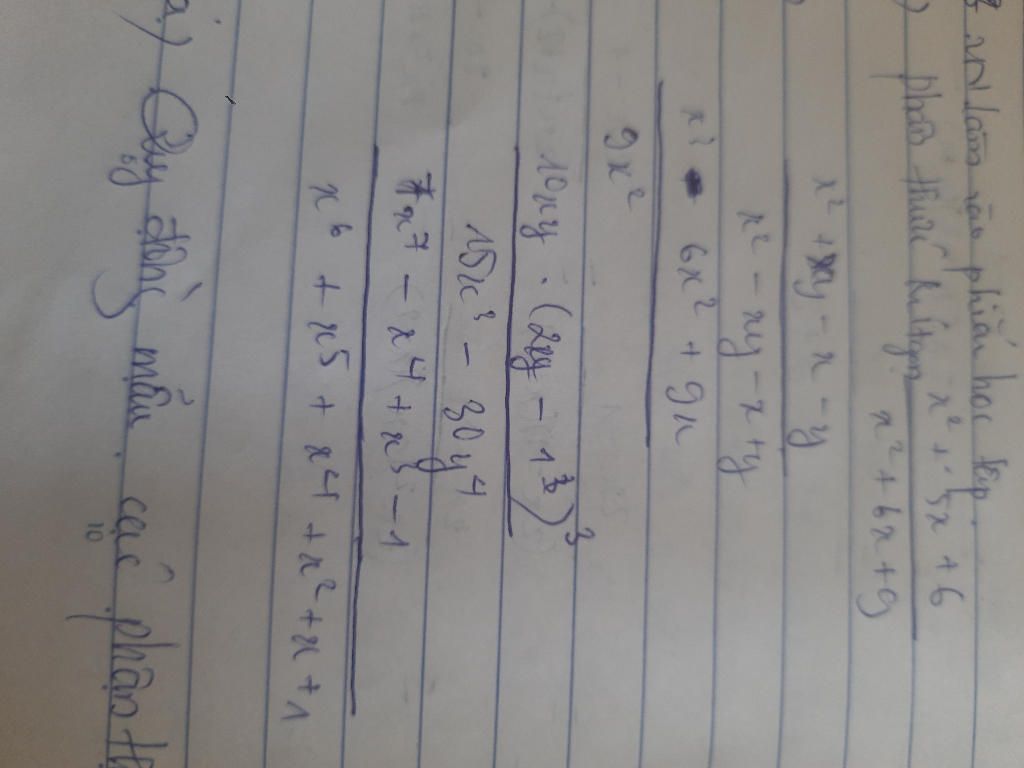 làm vào phiếu học tập
) phân thức rút gọn x² + 5x + 6
x² + 6x + 9
x² + xy - x - y
x² - xy - x + y
x³ 6x² + 9x
9x²
10xy . (2xy - 1³)³
15x³ - 30y⁴
x⁷ - x⁴ + x³ - 1
x⁶ + x⁵ + x⁴ + x² + x + 1
a) Quy đồng mẫu các phân th